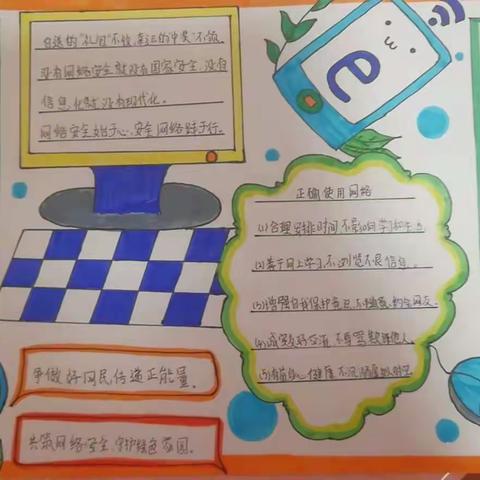 白送的“礼包”不收,幸运的中奖不领
没有网络安全就没有国家安全,没有
信息化就没有现代化。
网络安全始于心,安全网络践于行。
e
正确使用网络
(1)合理安排时间不影响学习和生活
(2)善于网上学习,不浏览不良信息。
(3)增强自我保护意识,不随意约会网友。
(4)诚实友好交流,不辱骂欺诈他人。
(5)有益身心健康,不沉溺虚拟时空
争做好网民传递正能量。
共筑网络安全,守护绿色家园。